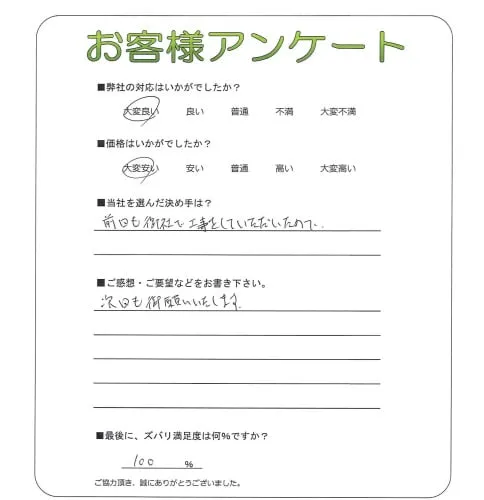 お客様アンケート
■弊社の対応はいかがでしたか?
大変良い 良い 普通 不満 大変不満
■価格はいかがでしたか?
大変安い 安い 普通 高い 大変高い
■当社を選んだ決め手は?
前回も御社で工事をしていただいたので、
■ご感想・ご要望などをお書き下さい。
次回も御願いいたします。
■最後に、ズバリ満足度は何%ですか?
100 %
ご協力頂き、誠にありがとうございました。